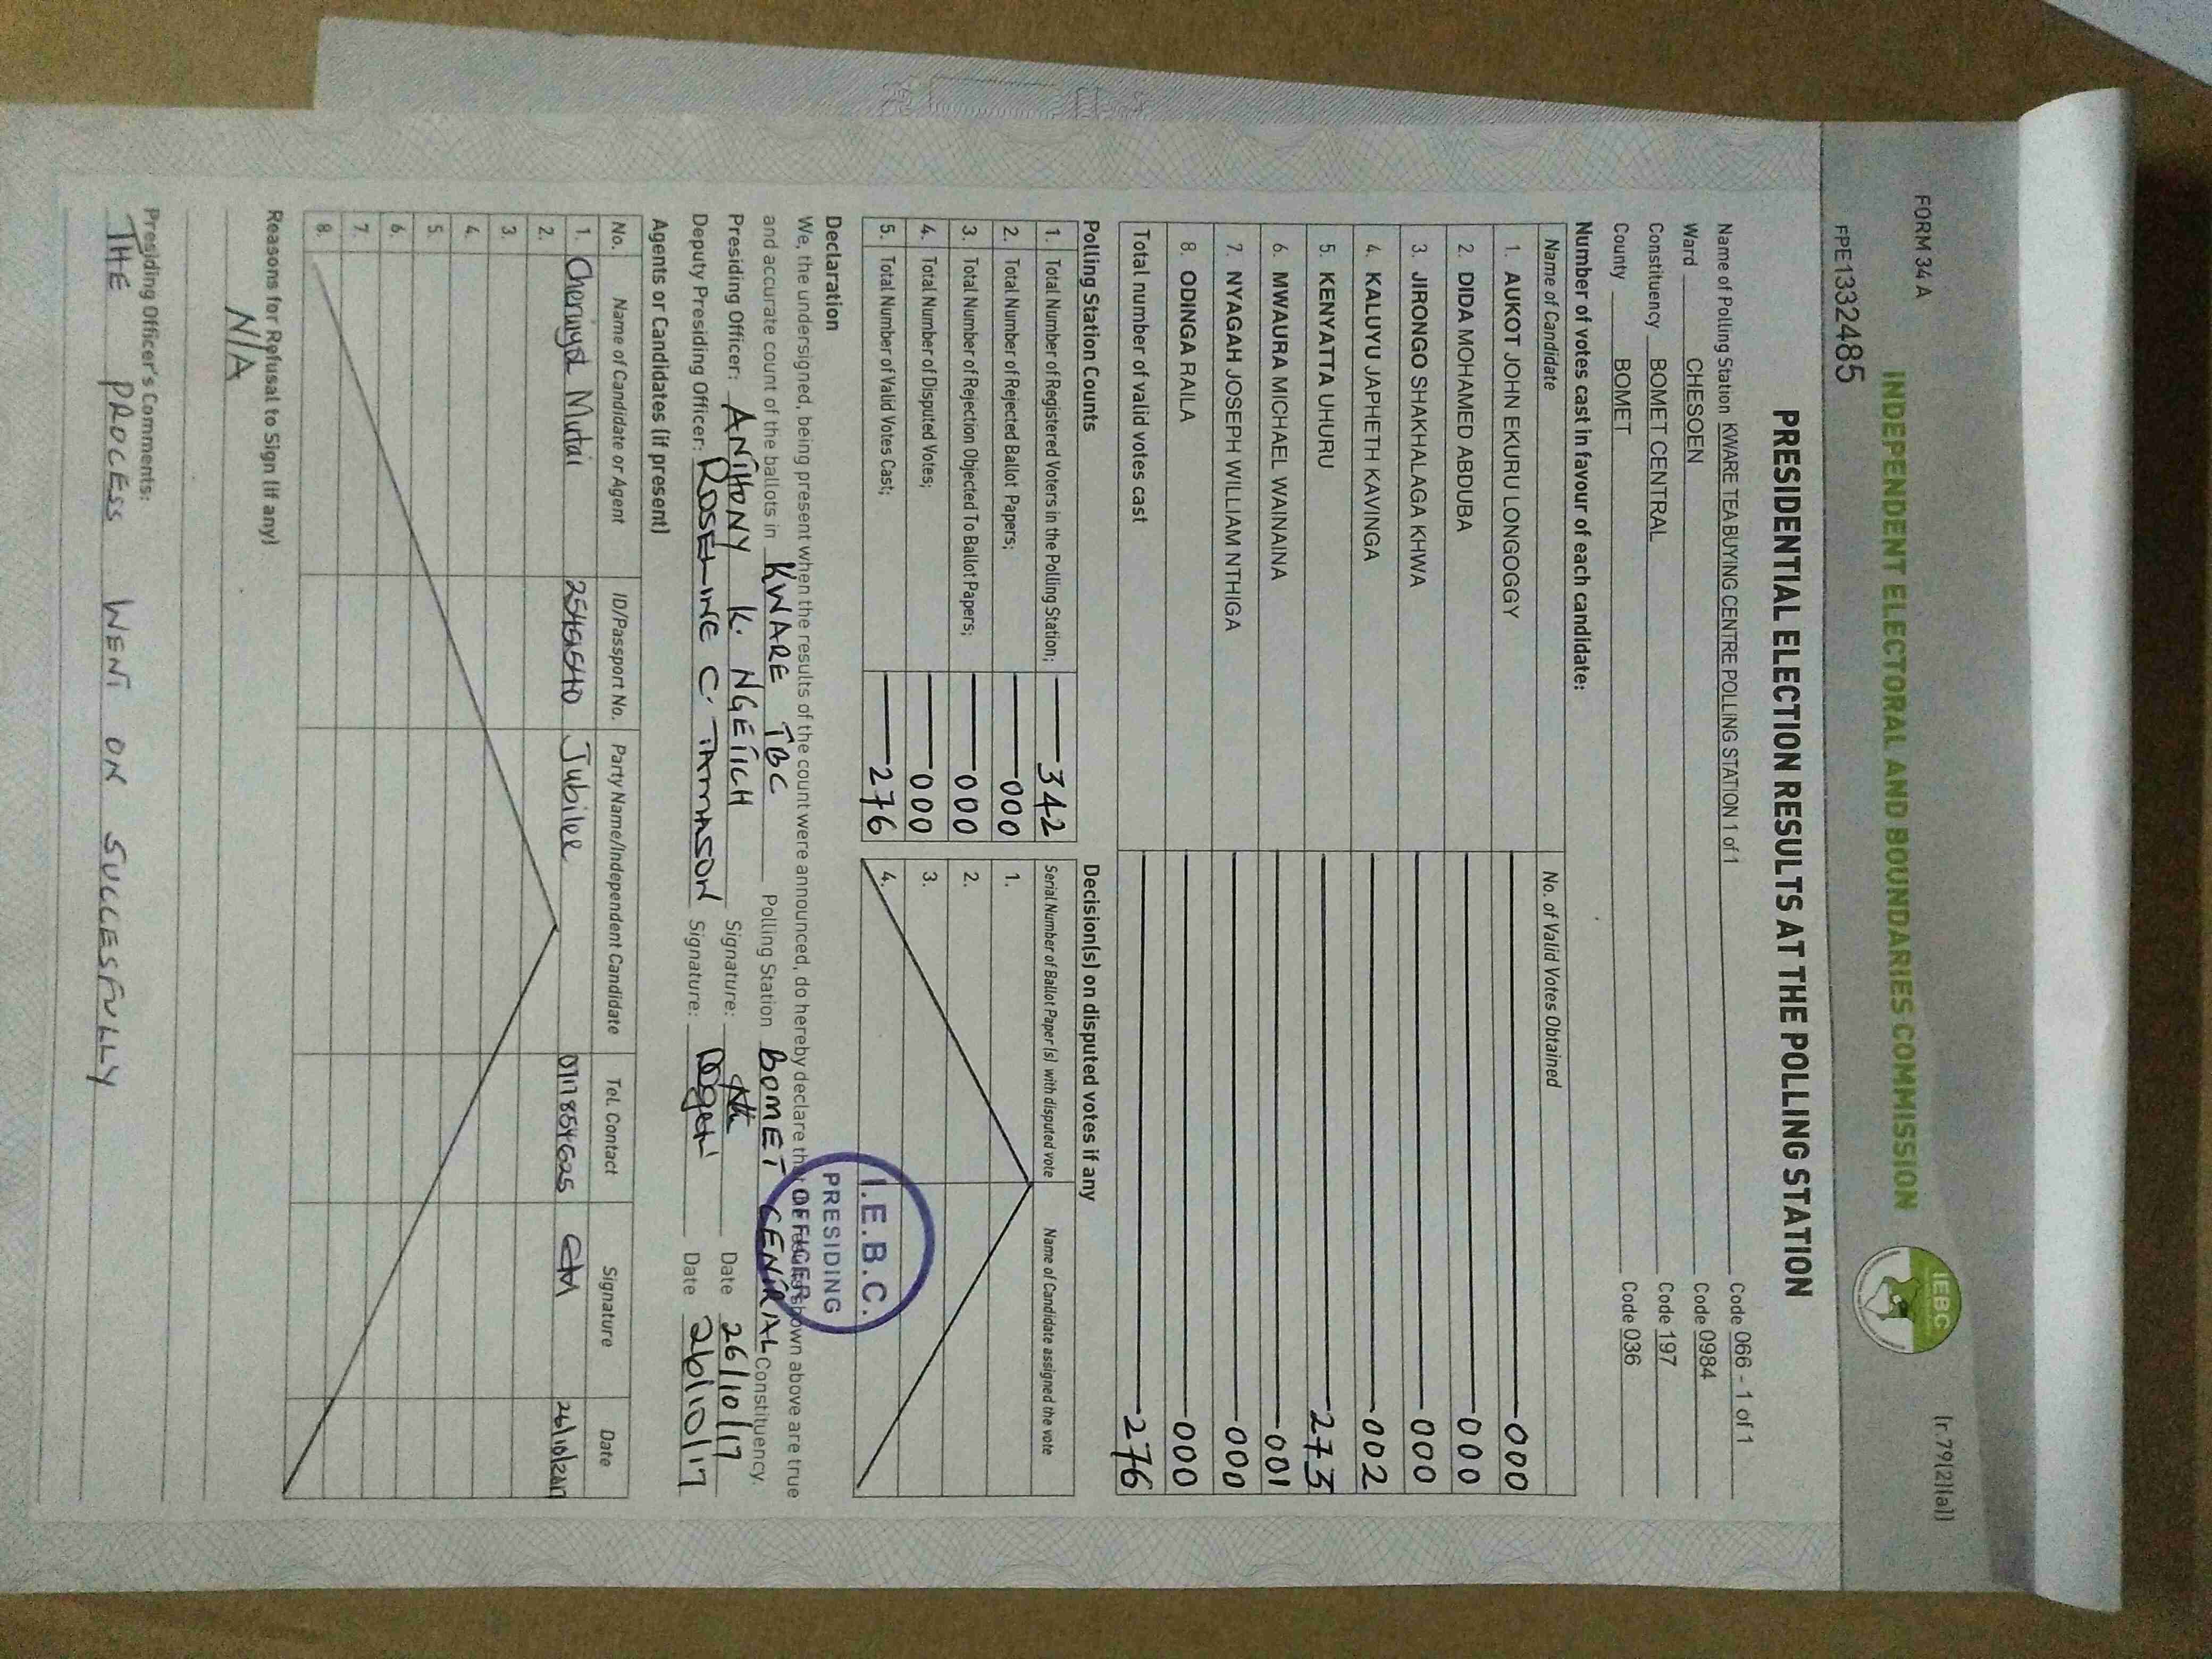 FORM 34 A
[r.79(2)(a)]
INDEPENDENT ELECTORAL AND BOUNDARIES COMMISSION
IEBC
FPE1332485
PRESIDENTIAL ELECTION RESULTS AT THE POLLING STATION
Name of Polling Station KWARE TEA BUYING CENTRE POLLING STATION 1 of 1 Code 066 - 1 of 1
Ward CHESOEN Code 0984
Constituency BOMET CENTRAL Code 197
County BOMET Code 036
Number of votes cast in favour of each candidate:
Name of Candidate No. of Valid Votes Obtained
1. AUKOT JOHN EKURU LONGOGGY 000
2. DIDA MOHAMED ABDUBA 000
3. JIRONGO SHAKHALAGA KHWA 000
4. KALUYU JAPHETH KAVINGA 002
5. KENYATTA UHURU 273
6. MWAURA MICHAEL WAINAINA 001
7. NYAGAH JOSEPH WILLIAM NTHIGA 000
8. ODINGA RAILA 000
Total number of valid votes cast 276
Polling Station Counts Decision(s) on disputed votes if any
1. Total Number of Registered Voters in the Polling Station; 342
2. Total Number of Rejected Ballot Papers; 000
3. Total Number of Rejection Objected To Ballot Papers; 000
4. Total Number of Disputed Votes; 000
5. Total Number of Valid Votes Cast; 276
Serial Number of Ballot Paper (s) with disputed vote Name of Candidate assigned the vote
1.
2.
3.
4.
I.E.B.C.
PRESIDING
OFFICER
Declaration
We, the undersigned, being present when the results of the count were announced, do hereby declare that the results shown above are true
and accurate count of the ballots in KWARE TBC Polling Station BOMET CENTRAL Constituency.
Presiding Officer: ANTHONY K. NGETICH Signature: Date 26/10/17
Deputy Presiding Officer: ROSELINE C. Signature: Date 26/10/17
Agents or Candidates (if present)
No. Name of Candidate or Agent ID/Passport No. Party Name/Independent Candidate Tel. Contact Signature Date
1. Cheruiyot Mutai Jubilee 0717854625 CM 26/10/2017
2.
3.
4.
5.
6.
7.
8.
Reasons for Refusal to Sign (if any)
N/A
Presiding Officer's Comments:
THE PROCESS WENT ON SUCCESFULLY